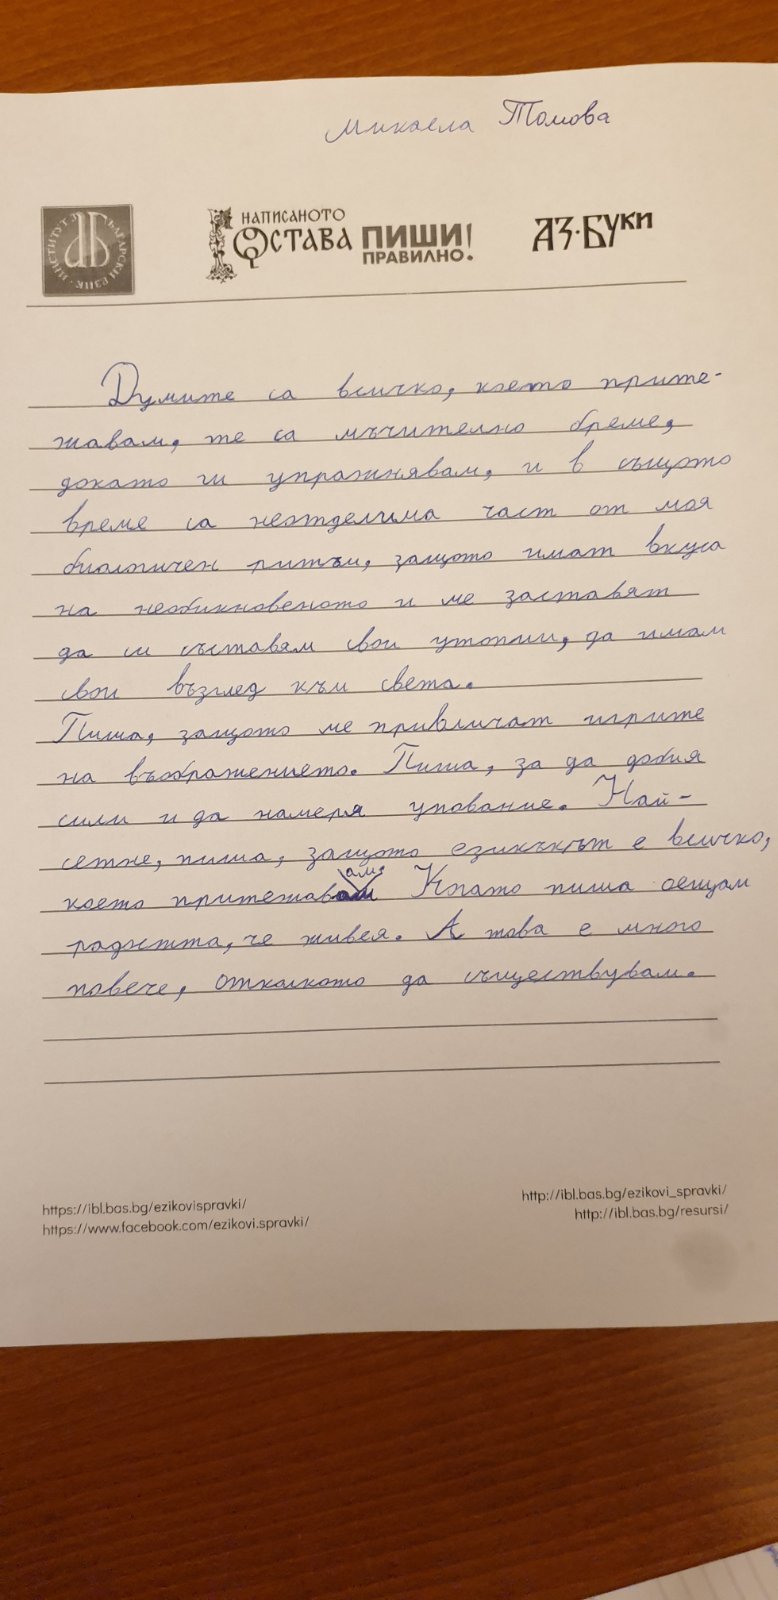 Микаела Томова
ИНСТИТУТ ЗА БЪЛГАРСКИ ЕЗИК
НАПИСАНОТО
ОСТАВА ПИШИ
ПРАВИЛНО!
АЗ·БУКИ
Думите са всичко, което прите-
жавам, те са мъчително бреме,
докато ги упражнявам, и в същото
време са неотделима част от моя
биологичен ритъм, защото имат вкуса
на необикновеното и ме заставят
да си съставям свои утопии, да имам
свои възглед към света.
Пиша, защото ме привличат игрите
на въображението. Пиша, за да добия
сили и да намеря упование. Най-
сетне, пиша, защото езикъкът е всичко,
което притежавам. Когато пиша усещам
радостта, че живея. А това е много
повече, отколкото да съществувам.
https://ibl.bas.bg/ezikovispravki/
https://www.facebook.com/ezikovi.spravki/
http://ibl.bas.bg/ezikovi_spravki/
http://ibl.bas.bg/resursi/